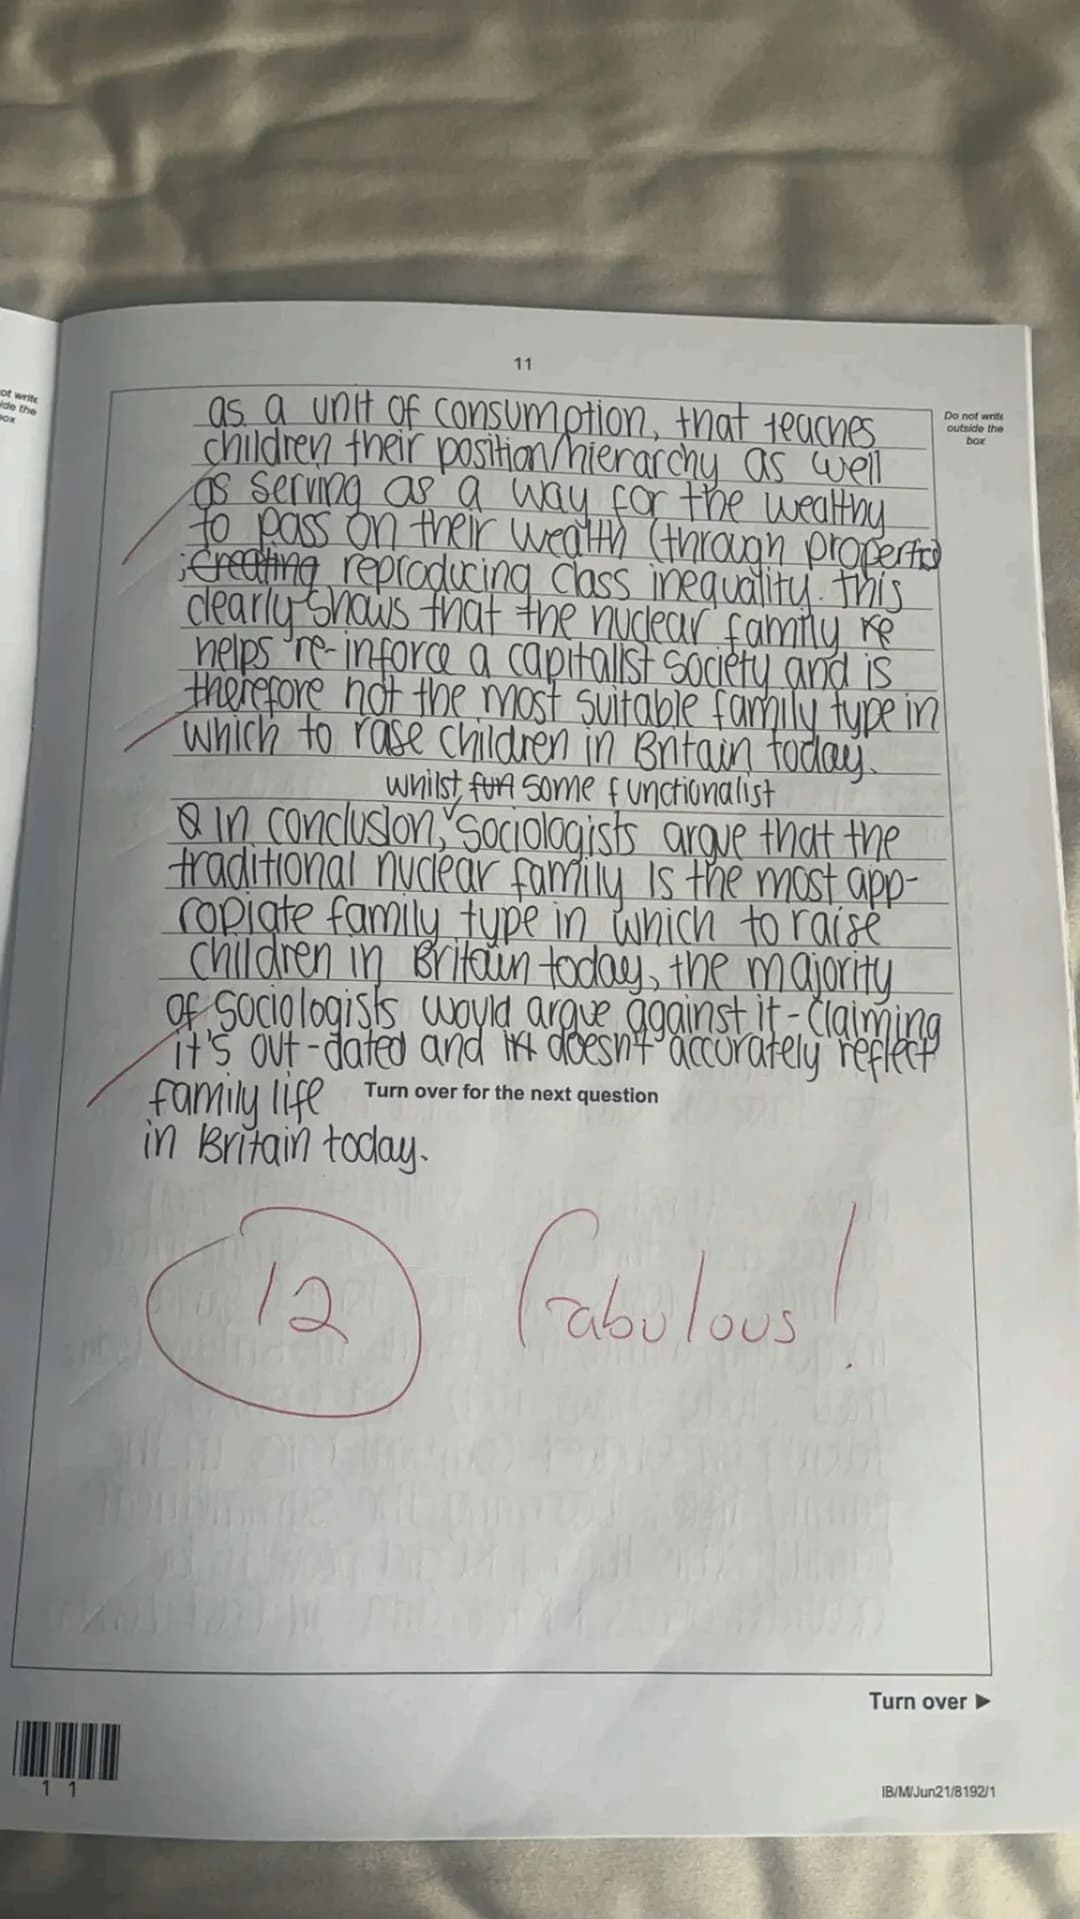 11
ot write
ide the
box
Do not write
outside the
box
as a unit of consumption, that teaches
children their position/hierarchy as well
as serving as a way for the wealthy
to pass on their wealth (through
; creating reproducing class inequality. This
clearly shows that the nuclear family re
helps re-inforce a capitalist society and is
therefore not the most suitable family type in
which to rase children in Britain today.
whilst fun some functionalist
In conclusion, sociologists argue that the
traditional nuclear family is the most app-
ropiate family type in which to raise
children in Britain today, the majority
of sociologists would argue against it - claiming
it's out-dated and doesn't accurately reflect
family life
Turn over for the next question
in Britain today.
12
fabulous!
Turn over ►
1 1
IB/M/Jun21/8192/1